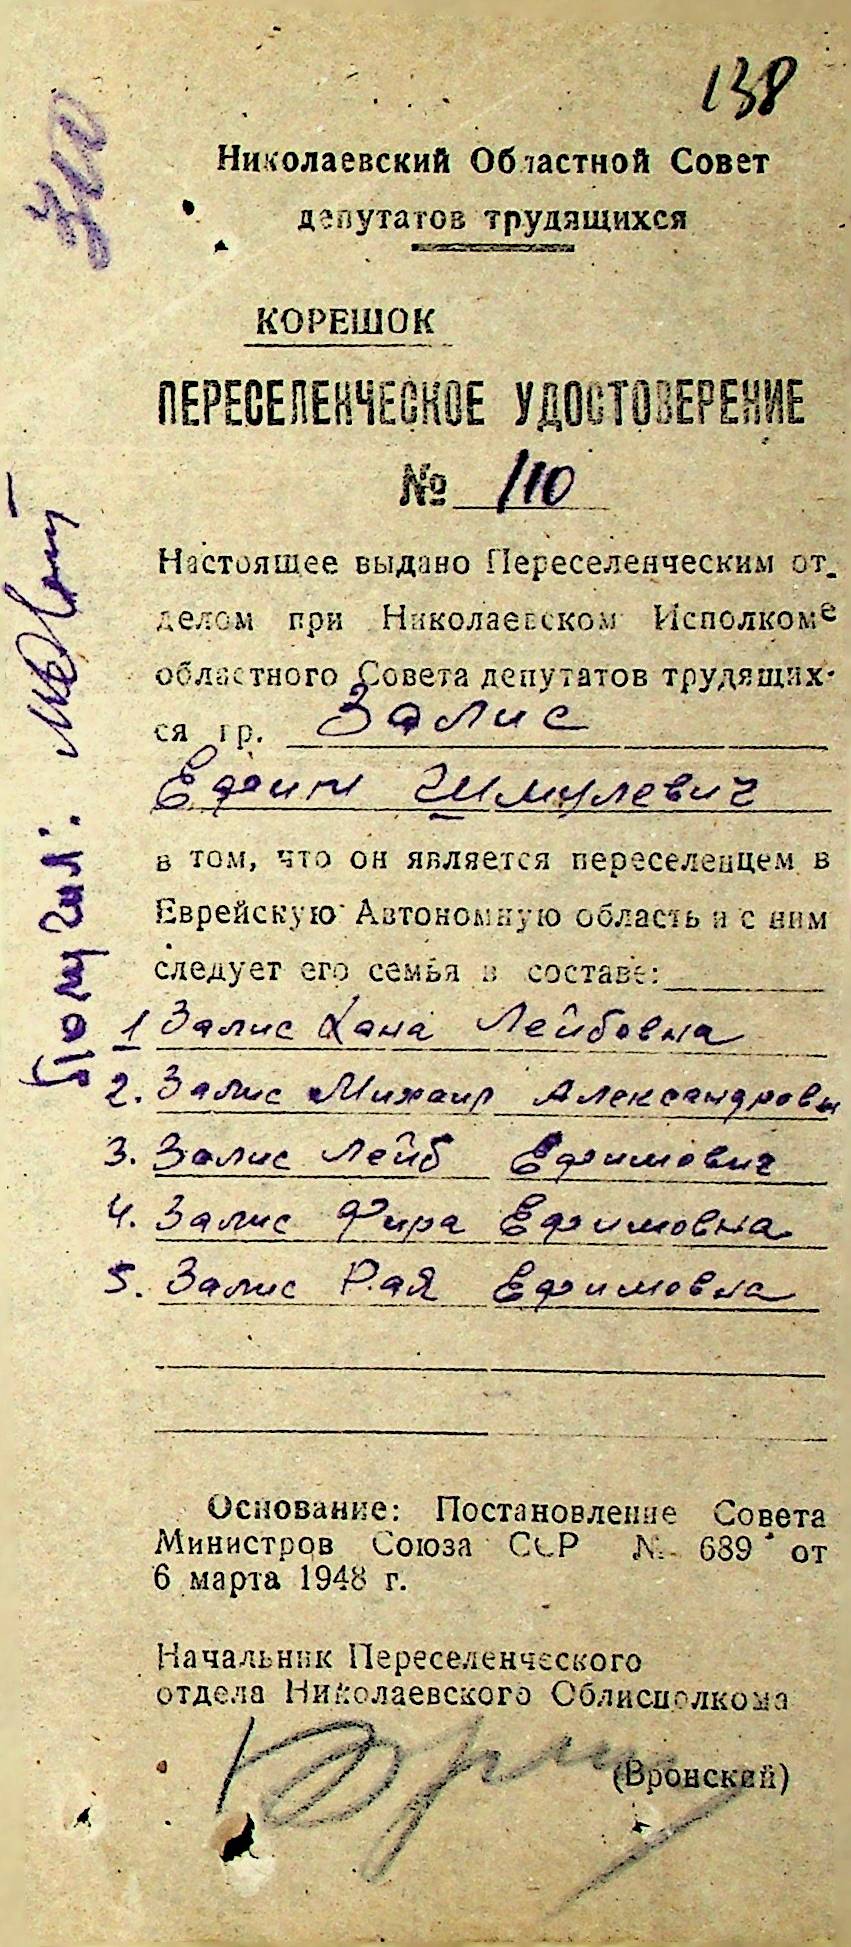 138
Николаевский Областной Совет
депутатов трудящихся
КОРЕШОК
ПЕРЕСЕЛЕНЧЕСКОЕ УДОСТОВЕРЕНИЕ
№ 110
Настоящее выдано Переселенческим от-
делом при Николаевском Исполкоме
областного Совета депутатов трудящих-
ся гр. Залис
Ефим Шмулевич
в том, что он является переселенцем в
Еврейскую Автономную область и с ним
следует его семья в составе:
1 Залис Хана Лейбовна
2. Залис Михаил Александровн
3. Залис Лейб Ефимович
4. Залис Фира Ефимовна
5. Залис Рая Ефимовна
Основание: Постановление Совета
Министров Союза ССР № 689 от
6 марта 1948 г.
Начальник Переселенческого
отдела Николаевского Облисполкома
(Вронский)
Получил: